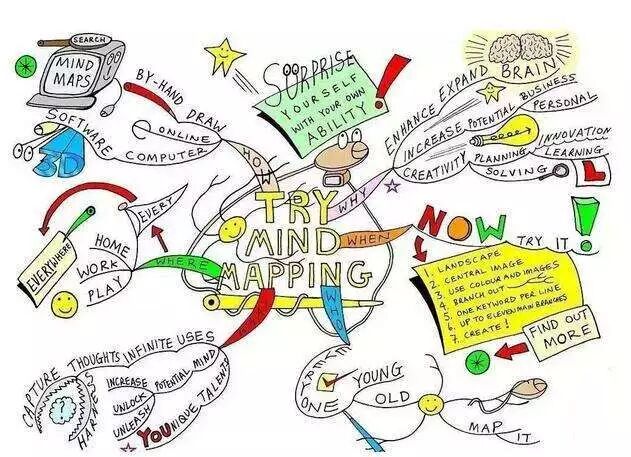 TRY
MIND
MAPPING
HOW
BY-HAND DRAW
ONLINE
COMPUTER
SOFTWARE
3D
SEARCH
MIND
MAPS
SURPRISE
YOURSELF
WITH YOUR OWN
ABILITY!
WHY
ENHANCE EXPAND BRAIN
INCREASE POTENTIAL BUSINESS
PERSONAL
CREATIVITY PLANNING INNOVATION
LEARNING
SOLVING
L
WHEN
NOW
TRY IT!
1. LANDSCAPE
2. CENTRAL IMAGE
3. USE COLOUR AND IMAGES
4. BRANCH OUT
5. ONE KEYWORD PER LINE
6. UP TO ELEVEN MAIN BRANCHES
7. CREATE!
FIND OUT
MORE
WHO
EVERYONE
YOUNG
OLD
MAP IT
WHAT
CAPTURE THOUGHTS INFINITE USES
HARNESS
INCREASE POTENTIAL MIND
UNLOCK
UNLEASH
YOUNIQUE TALENTS
WHERE
HOME
WORK
PLAY
EVERY
EVERYWHERE